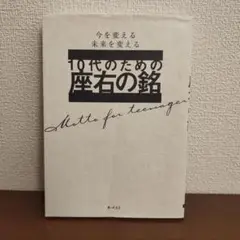 今を変える
未来を変える
10代のための
座右の銘
Motto for teenager